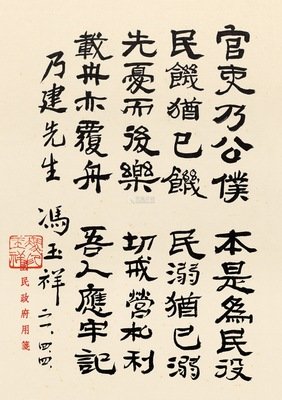 官吏乃公僕　本是爲民役
民饑猶己饑　民溺猶己溺
先憂而後樂　切戒營私利
載舟亦覆舟　吾人應牢記
乃建先生　馮玉祥
國民政府用箋